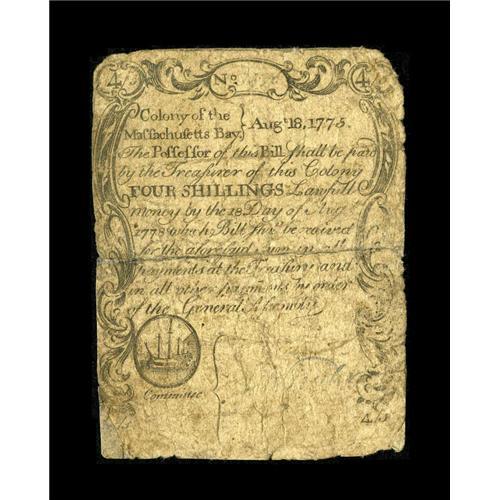 4 No 4
Colony of the } Augt. 18, 1775.
Massachusetts Bay,
The Possessor of this Bill shall be paid
by the Treasurer of this Colony
FOUR SHILLINGS Lawfull
money by the 18 Day of Augt.
1778 which Bill shall be received
for the aforesaid Sum in all
payments at the Treasury and
in all other payments by order
of the General Assembly
Committee
4 S